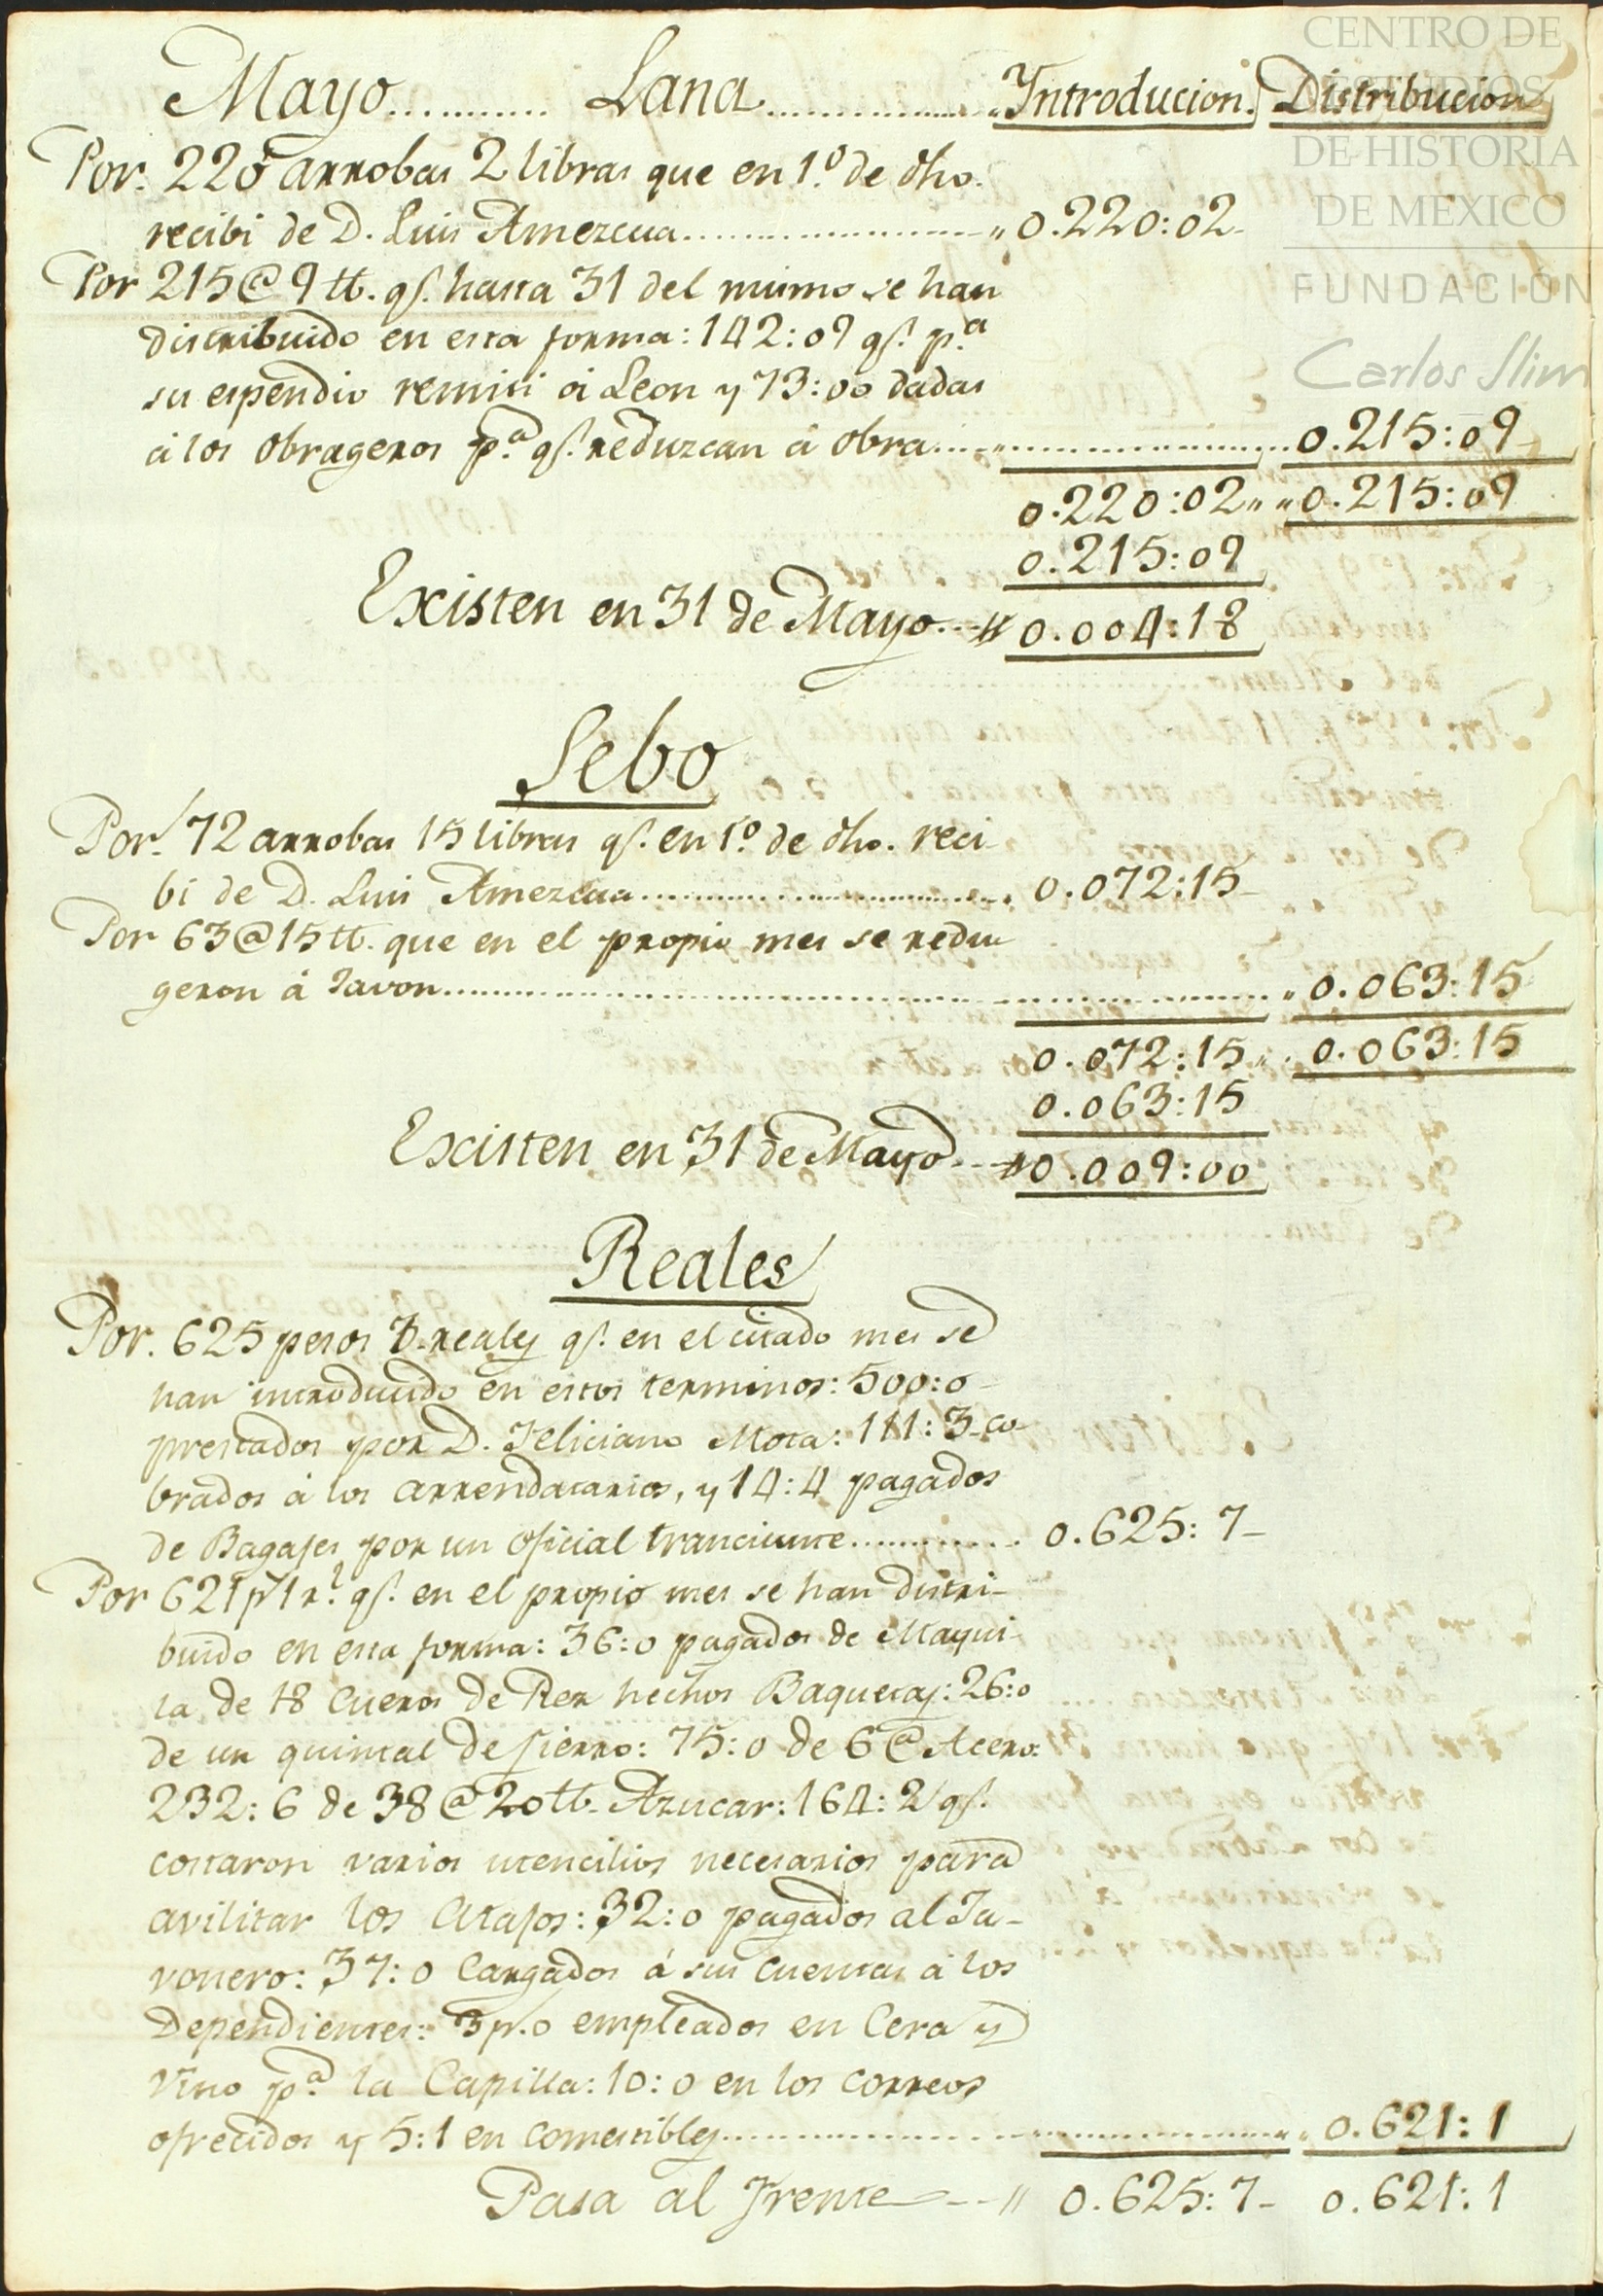 Mayo........... Lana................ Introducion. Distribucion
Por. 220 arrobas 2 libras que en 1.º de dho.
recibi de D. Luis Amezcua....................... „ 0.220:02-
Por 215@9 tt. qs. hasta 31 del mismo se han
distribuido en esta forma: 142:09 qs. p.a
su espendio remiti á Leon y 73:00 dadas
á los Obrageros p.a qs. reduzcan á obra...................... 0.215:09-
0.220:02„ „0.215:09
0.215:09
Existen en 31 de Mayo...# 0.004:18
Sebo
Por. 72 arrobas 15 libras qs. en 1.º de dho. reci-
bi de D. Luis Amezcua.......................... 0.072:15-
Por 63@15 tt. que en el propio mes se redu
geron á Javon...................................................... „ 0.063:15
0.072:15„ . 0.063:15
0.063:15
Existen en 31 de Mayo...# 0.009:00
Reales
Por. 625 pesos 7 reales qs. en el citado mes se
han introducido en estos terminos: 500:0-
prestados por D. Feliciano Mota: 111:3 co-
brados á los arrendatarios, y 14:4 pagados
de Bagajes por un oficial tranciunte............ 0.625:7-
Por 621 p.s 1 r.l qs. en el propio mes se han distri-
buido en esta forma: 36:0 pagados de Maqui-
la de 18 Cueros de Rez hechos Baquetas: 26:0
de un quintal de fierro: 75:0 de 6@ Acero:
232:6 de 38@20 tt. Azucar: 164:2 qs.
costaron varios utencilios necesarios para
avilitar los Atajos: 32:0 pagados al Ja-
vonero: 37:0 Cargados á sus Cuentas á los
Dependientes: 3 p.s 0 empleados en Cera y
Vino p.a la Capilla: 10:0 en los correos
ofrecidos y 5:1 en comestibles.................................... „ 0.621:1
Pasa al Frente---„ 0.625:7- 0.621:1
CENTRO DE
ESTUDIOS
DE HISTORIA
DE MEXICO
FUNDACIÓN
Carlos Slim